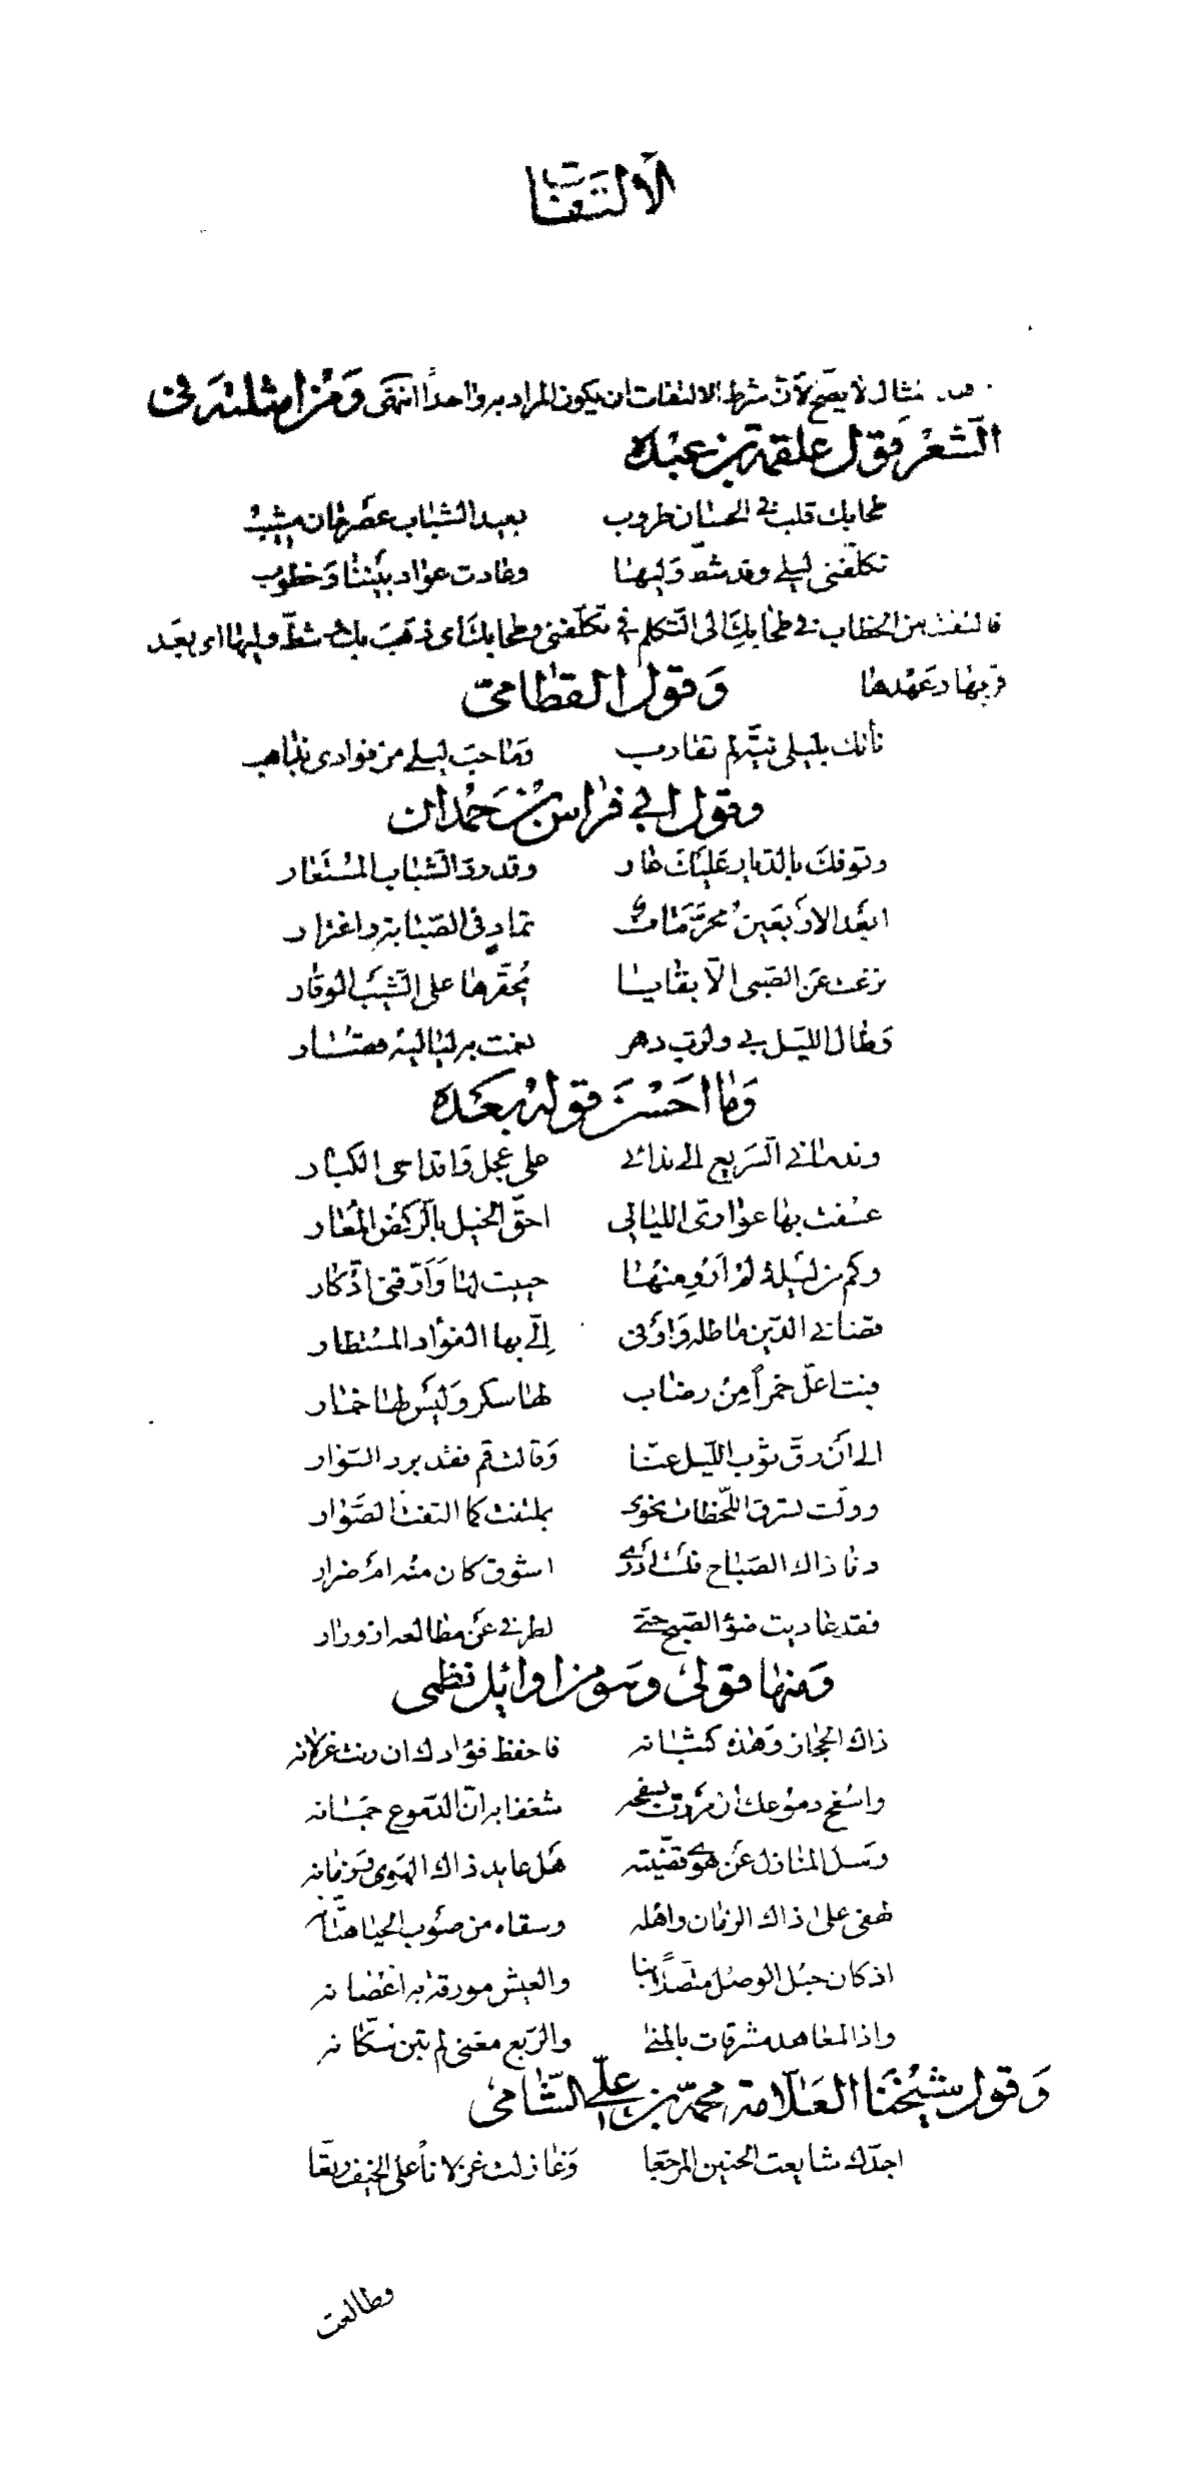 الالتفات
مثال لا يصح لأن شرط الالتفات ان يكون المراد به واحداً انتهى وَمن امثلته في
الشعر قول علقمة بن عبده
طحابك قلب في الحسان طروب بعيد الشباب عصر حان مشيب
تكلفنى ليلى وقد شطّ وليها وعادت عواد بيننا وخطوب
فالتفت من الخطاب في طحابك الى التكلم في تكلّفنى وطحابك اى ذهب بك وشطّ وليها اى بعد
قربها وعهدها وقول القطامى
نأتك بليلى نيّة لم تقارب وما حبّ ليلى من فوادى بذاهب
وقول ابي فراس بن حمدان
وقوفك بالديار عليك عار وقد ردّ الشباب المستعار
ابعد الاربعين محرّمات تماد في الصبابة واغترار
نزعت عن الصبى الا بقايا يحقّرها على الشيب الوقار
وطال الليل بي ولربّ دهر نعمت به لياليه قصار
وما احسن قوله بعده
وندمانى السريع الى ندائى على عجل واقداحى الكبار
عشقت بها عوارى الليالي احقّ الخيل بالركض المعار
وكم من ليلة لم ارو منها حييت لها وارّقنى ادّكار
قضانى الدين ماطله واوفى اليّ بها الفؤاد المستطار
فبتّ اعلّ خمراً من رضاب لها سكر وليس لها خمار
الى ان رقّ ثوب الليل عنّا وقالت قم فقد برد السوار
وولّت تسرق اللحظات نحوى بملتفت كما التفت الصوار
دنا ذاك الصباح فلست ادرى اشوق كان منه ام ضرار
فقد عاديت ضؤ الصبح حتى لطرفى عن مطالعه ازورار
ومنها قولى وهو من اوائل نظمى
ذاك الحجاز وهذه كثبانه فاحفظ فؤادك ان رنت غزلانه
واسفح دموعك ان مررت بسفحه شغفا به انّ الدموع جمانه
وسل المنازل عن هوى قضّيته هل عايد ذاك الهوى وزمانه
لهفى على ذاك الزمان واهله وسقاه من صوب الحيا هتّانه
اذ كان حبل الوصل متصلاً بنا والعيش مورقة به اغصانه
واذا المعاهد مشرقات بالمنى والربع مغنى لم تبن سكّانه
وقول شيخنا العلامة محمد بن علي الشامى
اجدّك شايعت الحنين المرجّعا وغازلت غزلاناً على الخيف رتّعا
وطالعت